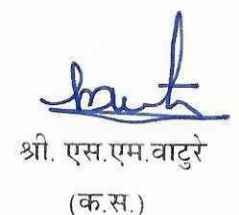 श्री. एस.एम.वाटुरे
(क.स.)